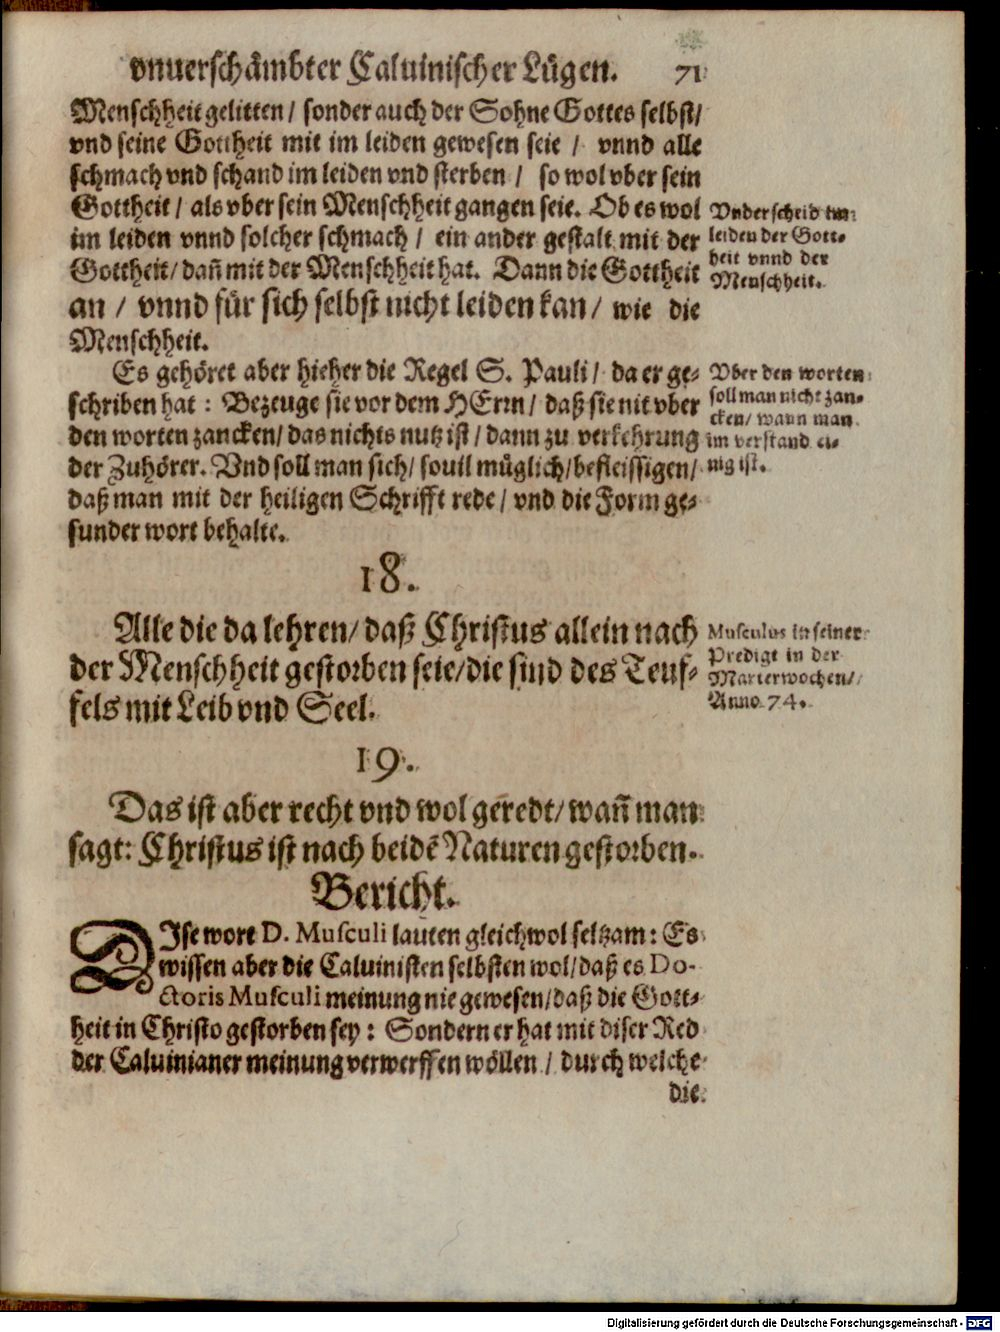 vnuerschämbter Caluinischer Lügen. 71
Menschheit gelitten / sonder auch der Sohne Gottes selbst/
vnd seine Gottheit mit im leiden gewesen seie / vnnd alle
schmach vnd schand im leiden vnd sterben / so wol vber sein
Gottheit / als vber sein Menschheit gangen seie. Ob es wol
im leiden vnnd solcher schmach / ein ander gestalt mit der
Gottheit / dañ mit der Menschheit hat. Dann die Gottheit
an / vnnd für sich selbst nicht leiden kan / wie die
Menschheit.
Vnderscheid im
leiden der Gott-
heit vnnd der
Menschheit.
Es gehöret aber hieher die Regel S. Pauli / da er ge-
schriben hat : Bezeuge sie vor dem HErrn / daß sie nit vber
den worten zancken / das nichts nutz ist / dann zu verkehrung
der Zuhörer. Vnd soll man sich / souil müglich / befleissigen /
daß man mit der heiligen Schrifft rede / vnd die Form ge-
sunder wort behalte.
Vber den worten
soll man nicht zan-
cken / wann man
im verstand ei-
nig ist.
18.
Alle die da lehren / daß Christus allein nach
der Menschheit gestorben seie / die sind des Teuf-
fels mit Leib vnd Seel.
Musculus in seiner
Predigt in der
Marterwochen /
Anno 74.
19.
Das ist aber recht vnd wol geredt / wañ man
sagt : Christus ist nach beidē Naturen gestorben.
Bericht.
DIse wort D. Musculi lauten gleichwol seltzam : Es
wissen aber die Caluinisten selbsten wol / daß es Do-
ctoris Musculi meinung nie gewesen / daß die Gott-
heit in Christo gestorben sey : Sondern er hat mit diser Red
der Caluinianer meinung verwerffen wöllen / durch welche
die
Digitalisierung gefördert durch die Deutsche Forschungsgemeinschaft - DFG